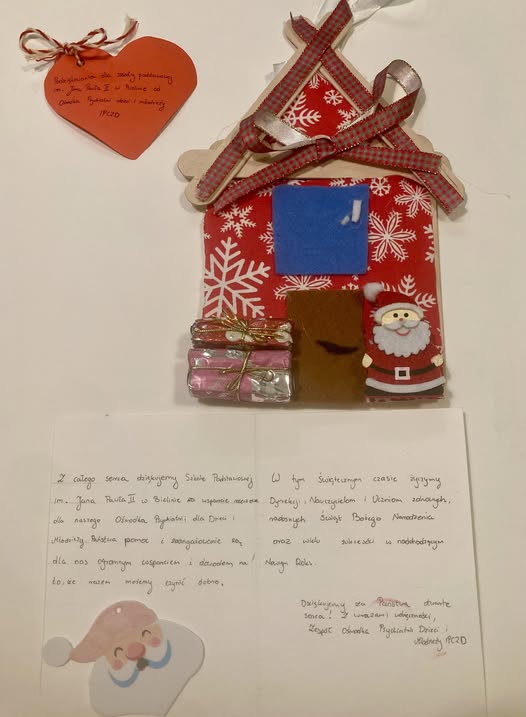 Podziękowania dla szkoły podstawowej
im. Jana Pawła II w Bielinie od
Ośrodka Psychiatrii dzieci i młodzieży
IPCZD
Z całego serca dziękujemy Szkole Podstawowej
im. Jana Pawła II w Bielinie za wsparcie
dla naszego Ośrodka Psychiatrii dla Dzieci i
Młodzieży. Państwa pomoc i zaangażowanie są
dla nas ogromnym wsparciem i dowodem na
to, że razem możemy czynić dobro.
W tym świątecznym czasie życzymy
Dyrekcji, Nauczycielom i Uczniom zdrowych,
radosnych Świąt Bożego Narodzenia
oraz wielu sukcesów w nadchodzącym
Nowym Roku.
Dziękujemy za Państwa otwarte
serca! Z wyrazami wdzięczności,
Zespół Ośrodka Psychiatrii Dzieci i
Młodzieży IPCZD